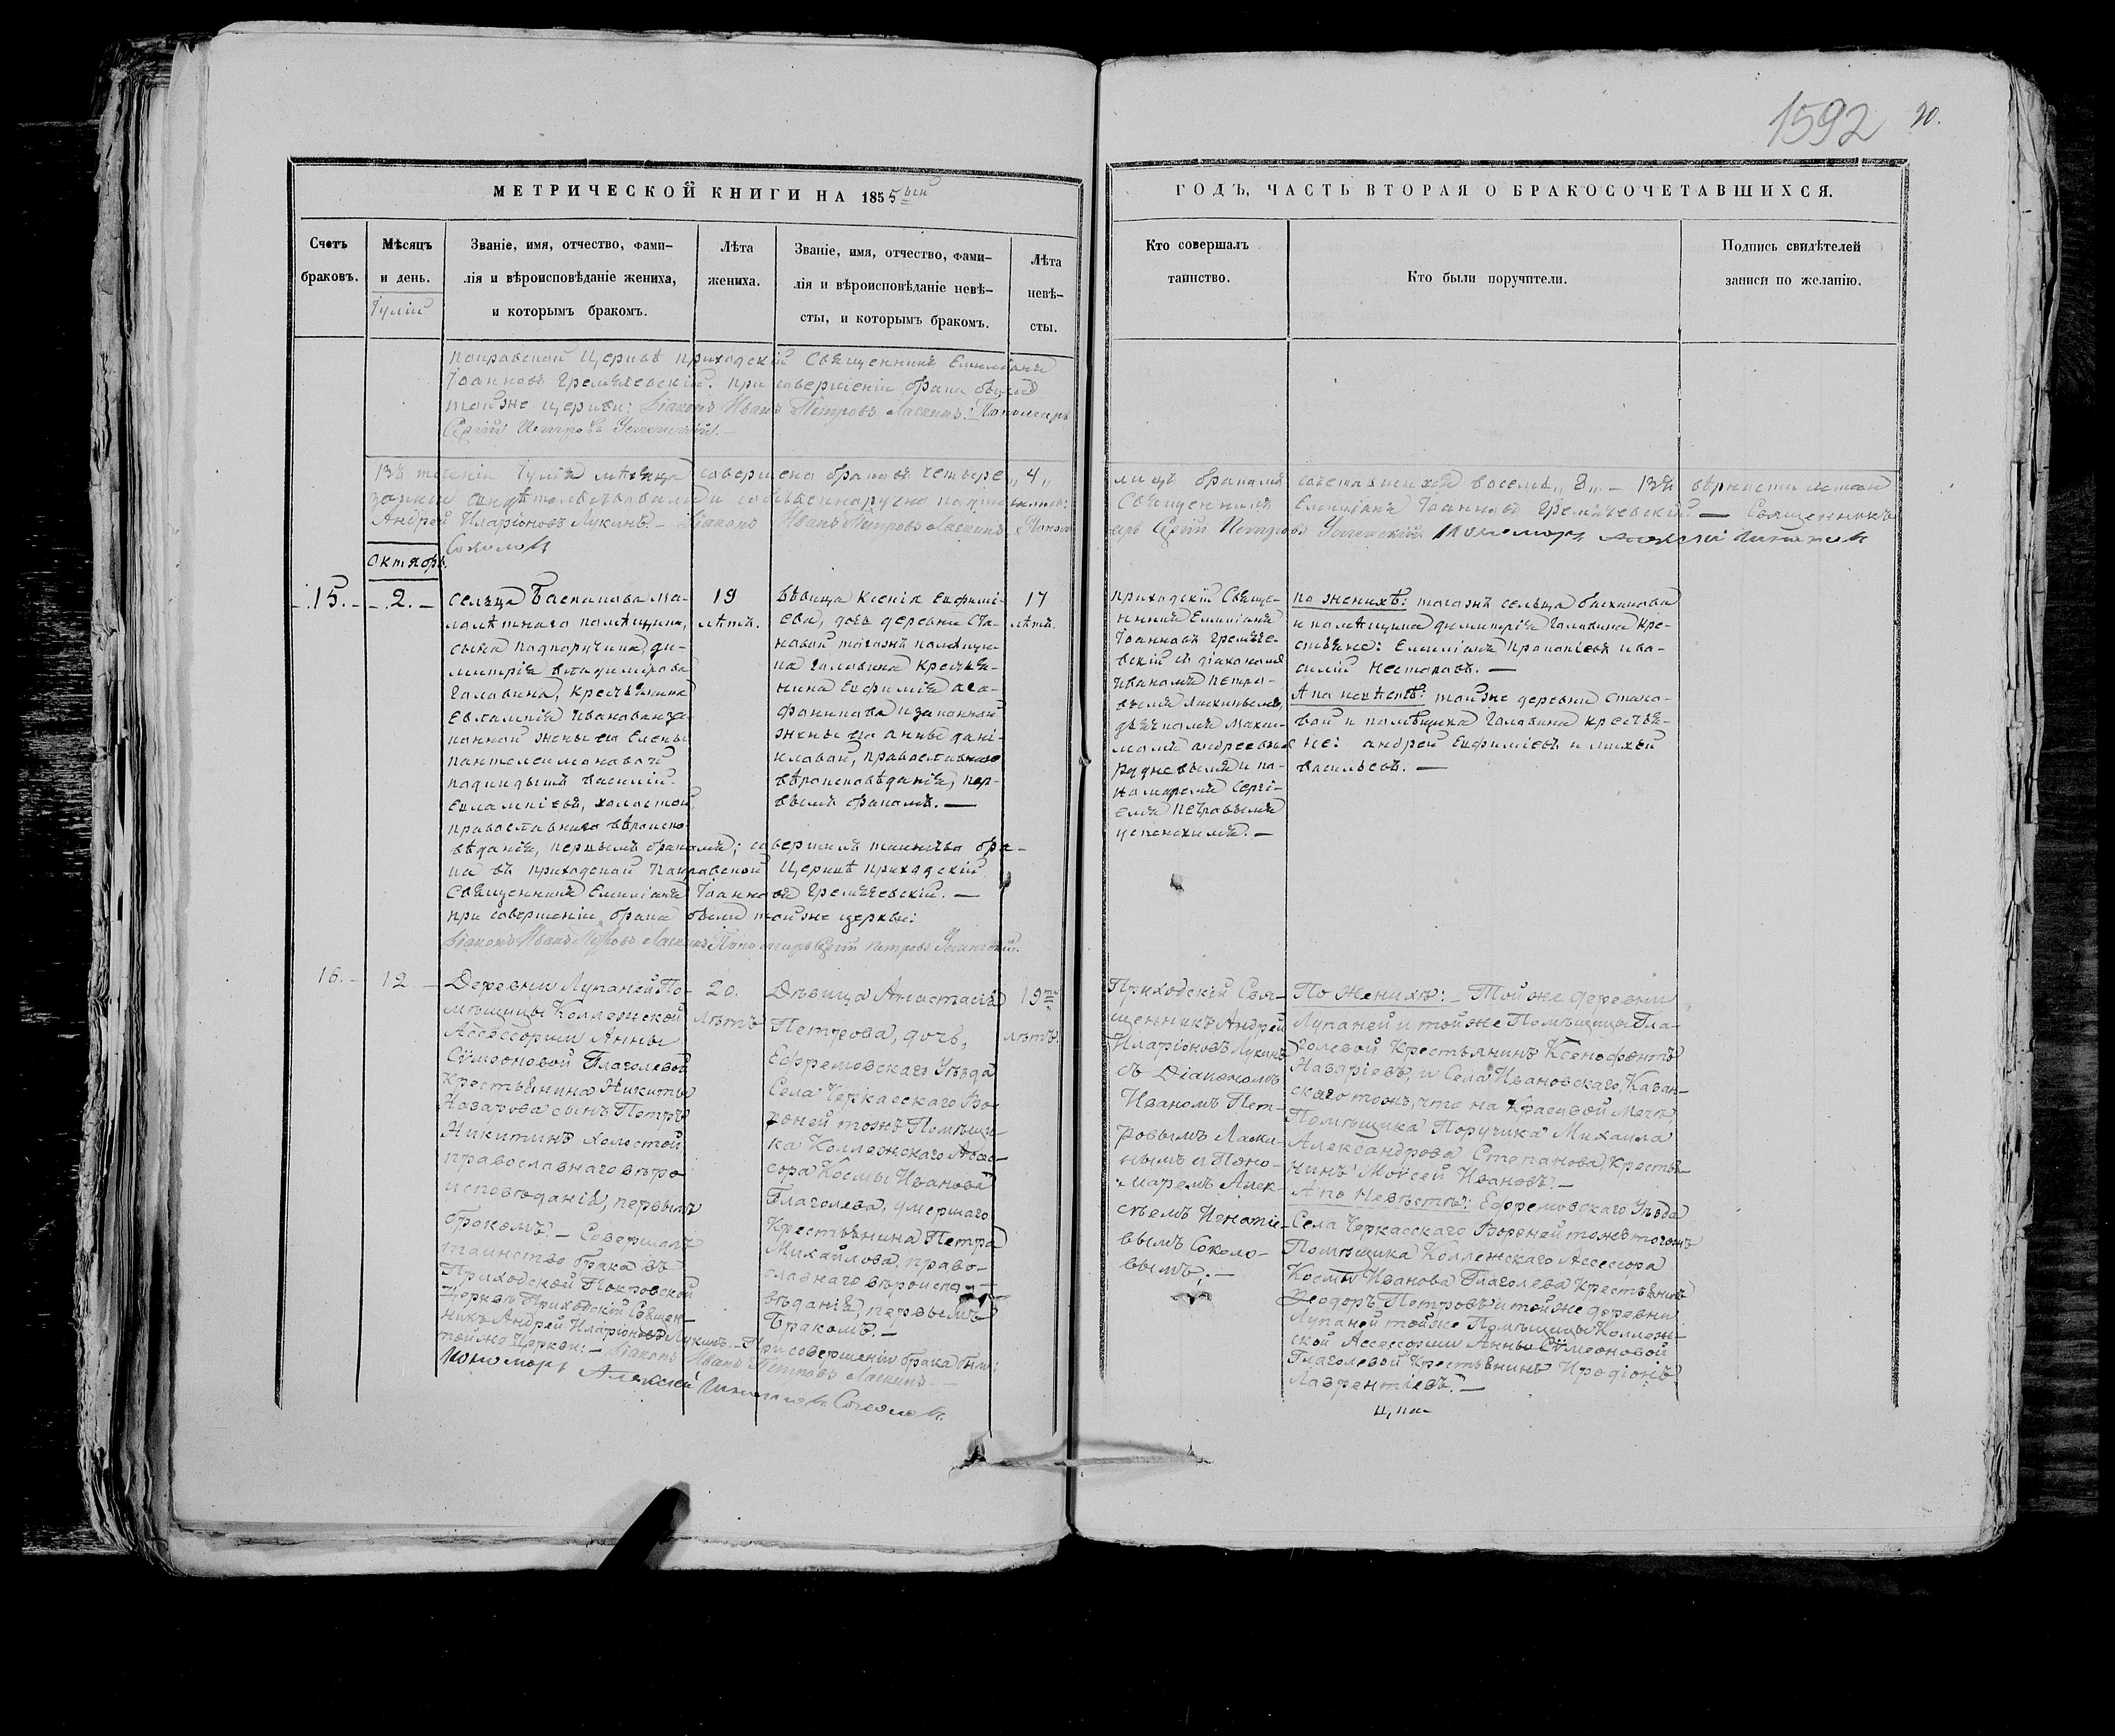 1592 20.
МЕТРИЧЕСКОЙ КНИГИ НА 1855
ГОДЪ, ЧАСТЬ ВТОРАЯ О БРАКОСОЧЕТАВШИХСЯ.
Счетъ
браковъ.
Мѣсяцъ
и день.
Іулій
Званіе, имя, отчество, фами-
лія и вѣроисповѣданіе жениха,
и которымъ бракомъ.
Лѣта
жениха.
Званіе, имя, отчество, фами-
лія и вѣроисповѣданіе невѣ-
сты, и которымъ бракомъ.
Лѣта
невѣ-
сты.
Кто совершалъ
таинство.
Кто были поручители.
Подпись свидѣтелей
записи по желанію.
Покровской Церкви приходскій Священникъ Емиліанъ
Іоанновъ Гремячевскій. при совершеніи брака были
той же церкви: Діаконъ Иванъ Петровъ Ласкинъ. Пономарь
Сергій Петровъ Успенскій.
Въ теченіи Іулія мѣсяца совершено браковъ четыре „4„
лицъ бракомъ сочетавшихся восемь „8„ — Въ вѣрности
Священникъ Емиліанъ Іоанновъ Гремячевскій — Священникъ
Андрей Иларіоновъ Лукинъ. — Діаконъ Иванъ Петровъ Ласкинъ Поном
арь Сергій Петровъ Успенскій Пономарь Алексій Игнатіевъ
Соколовъ
Октябрь.
15. 2.
сельца Баскакова ма-
лолѣтнаго помѣщика,
сына подпоручика Ди-
митрія Владимірова
Головина, крестьянина
Евлампія Иванова и за-
конной жены его Елены
Пантелеимоновой
Василій
Евлампіевъ, холостой
православнаго вѣроиспо
вѣданія, первымъ бракомъ; совершилъ таинство бра-
ка въ приходской Покровской Церкви приходскій
Священникъ Емиліанъ Іоанновъ Гремячевскій. —
при совершеніи брака были той же церкви:
Діаконъ Иванъ Петровъ Ласкинъ Пономарь Сергій Петровъ Успенскій.
19
лѣтъ.
Дѣвица Ксенія Евфимі-
ева, дочь деревни Ста-
ховой тогожъ помѣщи-
ка Головина крестья-
нина Евфимія Ага-
фоникова и законной
жены его Анны Дані-
иловой, православнаго
вѣроисповѣданія, пер-
вымъ бракомъ. —
17
лѣтъ.
приходскій Свяще-
нникъ Емиліанъ
Іоанновъ Гремяче-
вскій съ діакономъ
Иваномъ Петро-
вымъ Ласкинымъ,
дьячкомъ Макси-
момъ Андреевымъ
Рудневымъ и по-
номаремъ Сергі-
емъ Петровымъ
Успенскимъ. —
по женихѣ: тогожъ сельца Баскакова
и помѣщика Димитрія Головина кре-
стьяне: Емиліанъ Прокопіевъ и Ва-
силій Несторовъ. —
А по невѣстѣ: той же деревни Стахо-
вой и помѣщика Головина крестья-
не: Андрей Евфиміевъ и Михей
Васильевъ. —
16. 12
Деревни Лупаней По-
мѣщицы Коллежской
Ассессорши Анны
Сѵмеоновой Глаголевой
Крестьянина Никиты
Назарова сынъ Петръ
Никитинъ холостой
православнаго вѣро
исповѣданія, первымъ
бракомъ. — Совершалъ
таинство брака въ
Приходской Покровской
Церкви Приходскій Священ-
никъ Андрей Иларіоновъ Лукинъ. — При совершеніи брака были:
той же Церкви: — Діаконъ Иванъ Петровъ Ласкинъ. —
Пономарь Алексій Игнатіевъ Соколовъ.
20.
лѣтъ
Дѣвица Анастасія
Петрова, дочь,
Ефремовскаго Уѣзда
Села Черкасскаго Во-
роней тожъ Помѣщи-
ка Коллежскаго Асес-
сора Космы Иванова
Глаголева, умершаго
Крестьянина Петра
Михайлова, право-
славнаго вѣроиспо-
вѣданія, первымъ
бракомъ. —
19
лѣтъ.
Приходскій Свя-
щенникъ Андрей
Иларіоновъ Лукинъ
съ Діакономъ
Иваномъ Пет-
ровымъ Ласки-
нымъ и Поно-
маремъ Алек-
сѣемъ Игнатіе-
вымъ Соколо-
вымъ. —
По Женихѣ: — Той же деревни
Лупаней и той же Помѣщицы Гла-
голевой Крестьянинъ Ксенофонтъ
Назаріевъ, и Села Ивановскаго, Казан-
скаго тожъ, что на Красивой Мечѣ,
Помѣщика Поручика Михаила
Александрова Степанова, Крестья-
нинъ Моѵсей Ивановъ. —
А по Невѣстѣ: Ефремовскаго Уѣзда
Села Черкасскаго Вороней тожъ тогожъ
Помѣщика Коллежскаго Ассессора
Космы Иванова Глаголева Крестьянинъ
Ѳеодоръ Петровъ и той же деревни
Лупаней той же Помѣщицы Коллеж-
ской Ассессорши Анны Сѵмеоновой
Глаголевой Крестьянинъ Иродіонъ
Лаврентіевъ. —